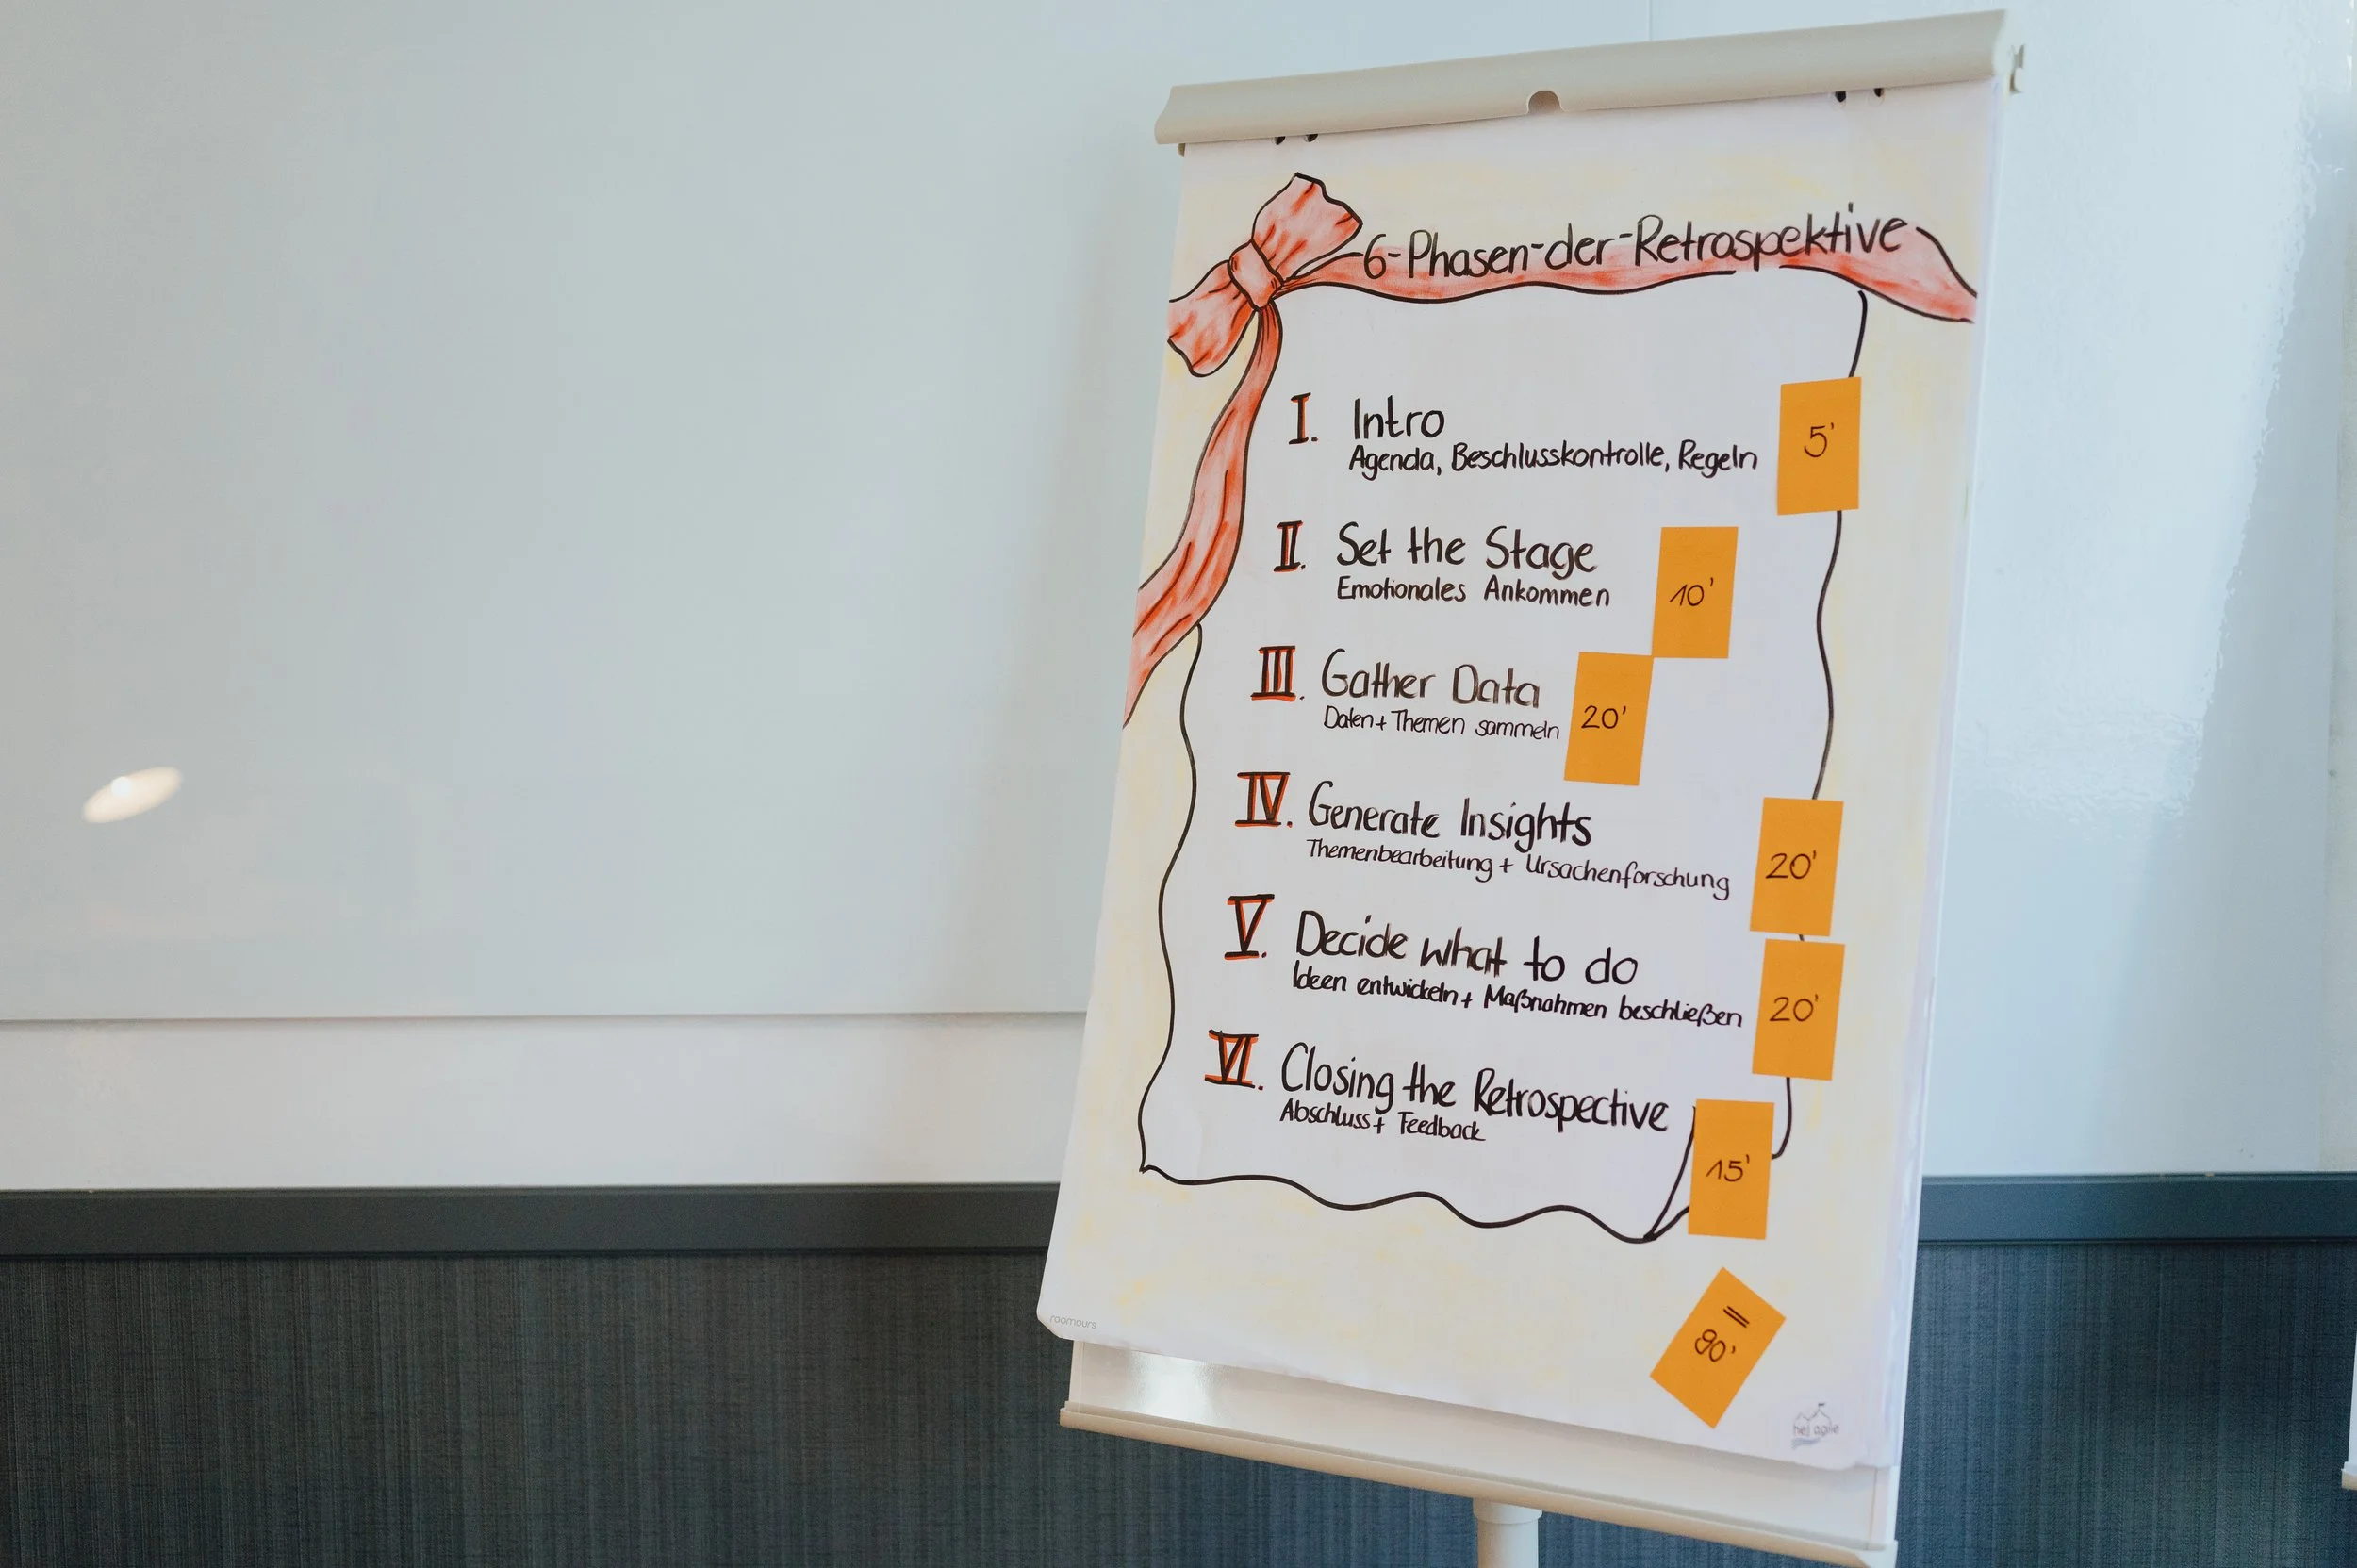 6-Phasen-der-Retrospektive
I. Intro
Agenda, Beschlusskontrolle, Regeln
5'
II. Set the Stage
Emotionales Ankommen
10'
III. Gather Data
Daten + Themen sammeln
20'
IV. Generate Insights
Themenbearbeitung + Ursachenforschung
20'
V. Decide what to do
Ideen entwickeln + Maßnahmen beschließen
20'
VI. Closing the Retrospective
Abschluss + Feedback
15'
=
90'
roomours
hej agile